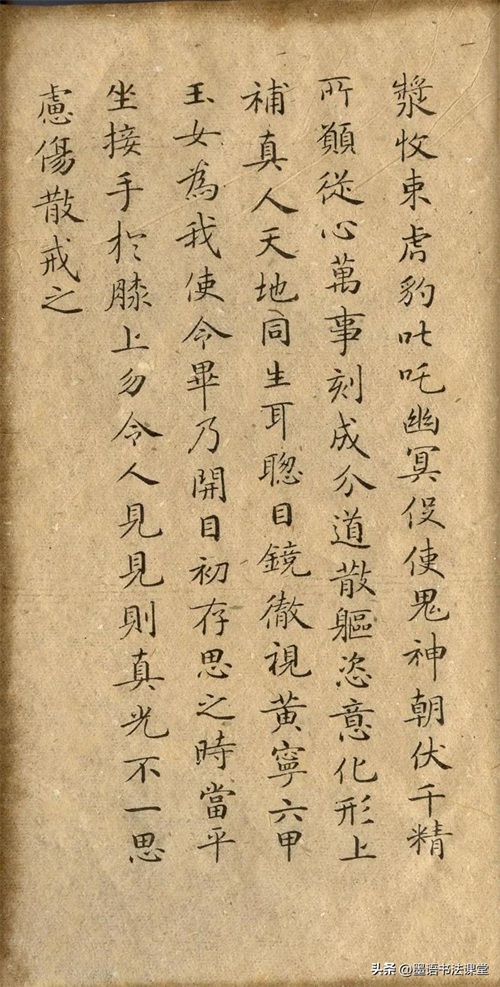 漿收束虎豹叱吒幽冥役使鬼神朝伏千精
所願從心萬事刻成分道散軀恣意化形上
補真人天地同生耳聰目鏡徹視黃寧六甲
玉女為我使令畢乃開目初存思之時當平
坐接手於膝上勿令人見見則真光不一思
慮傷散戒之
头条 @墨语书法课堂